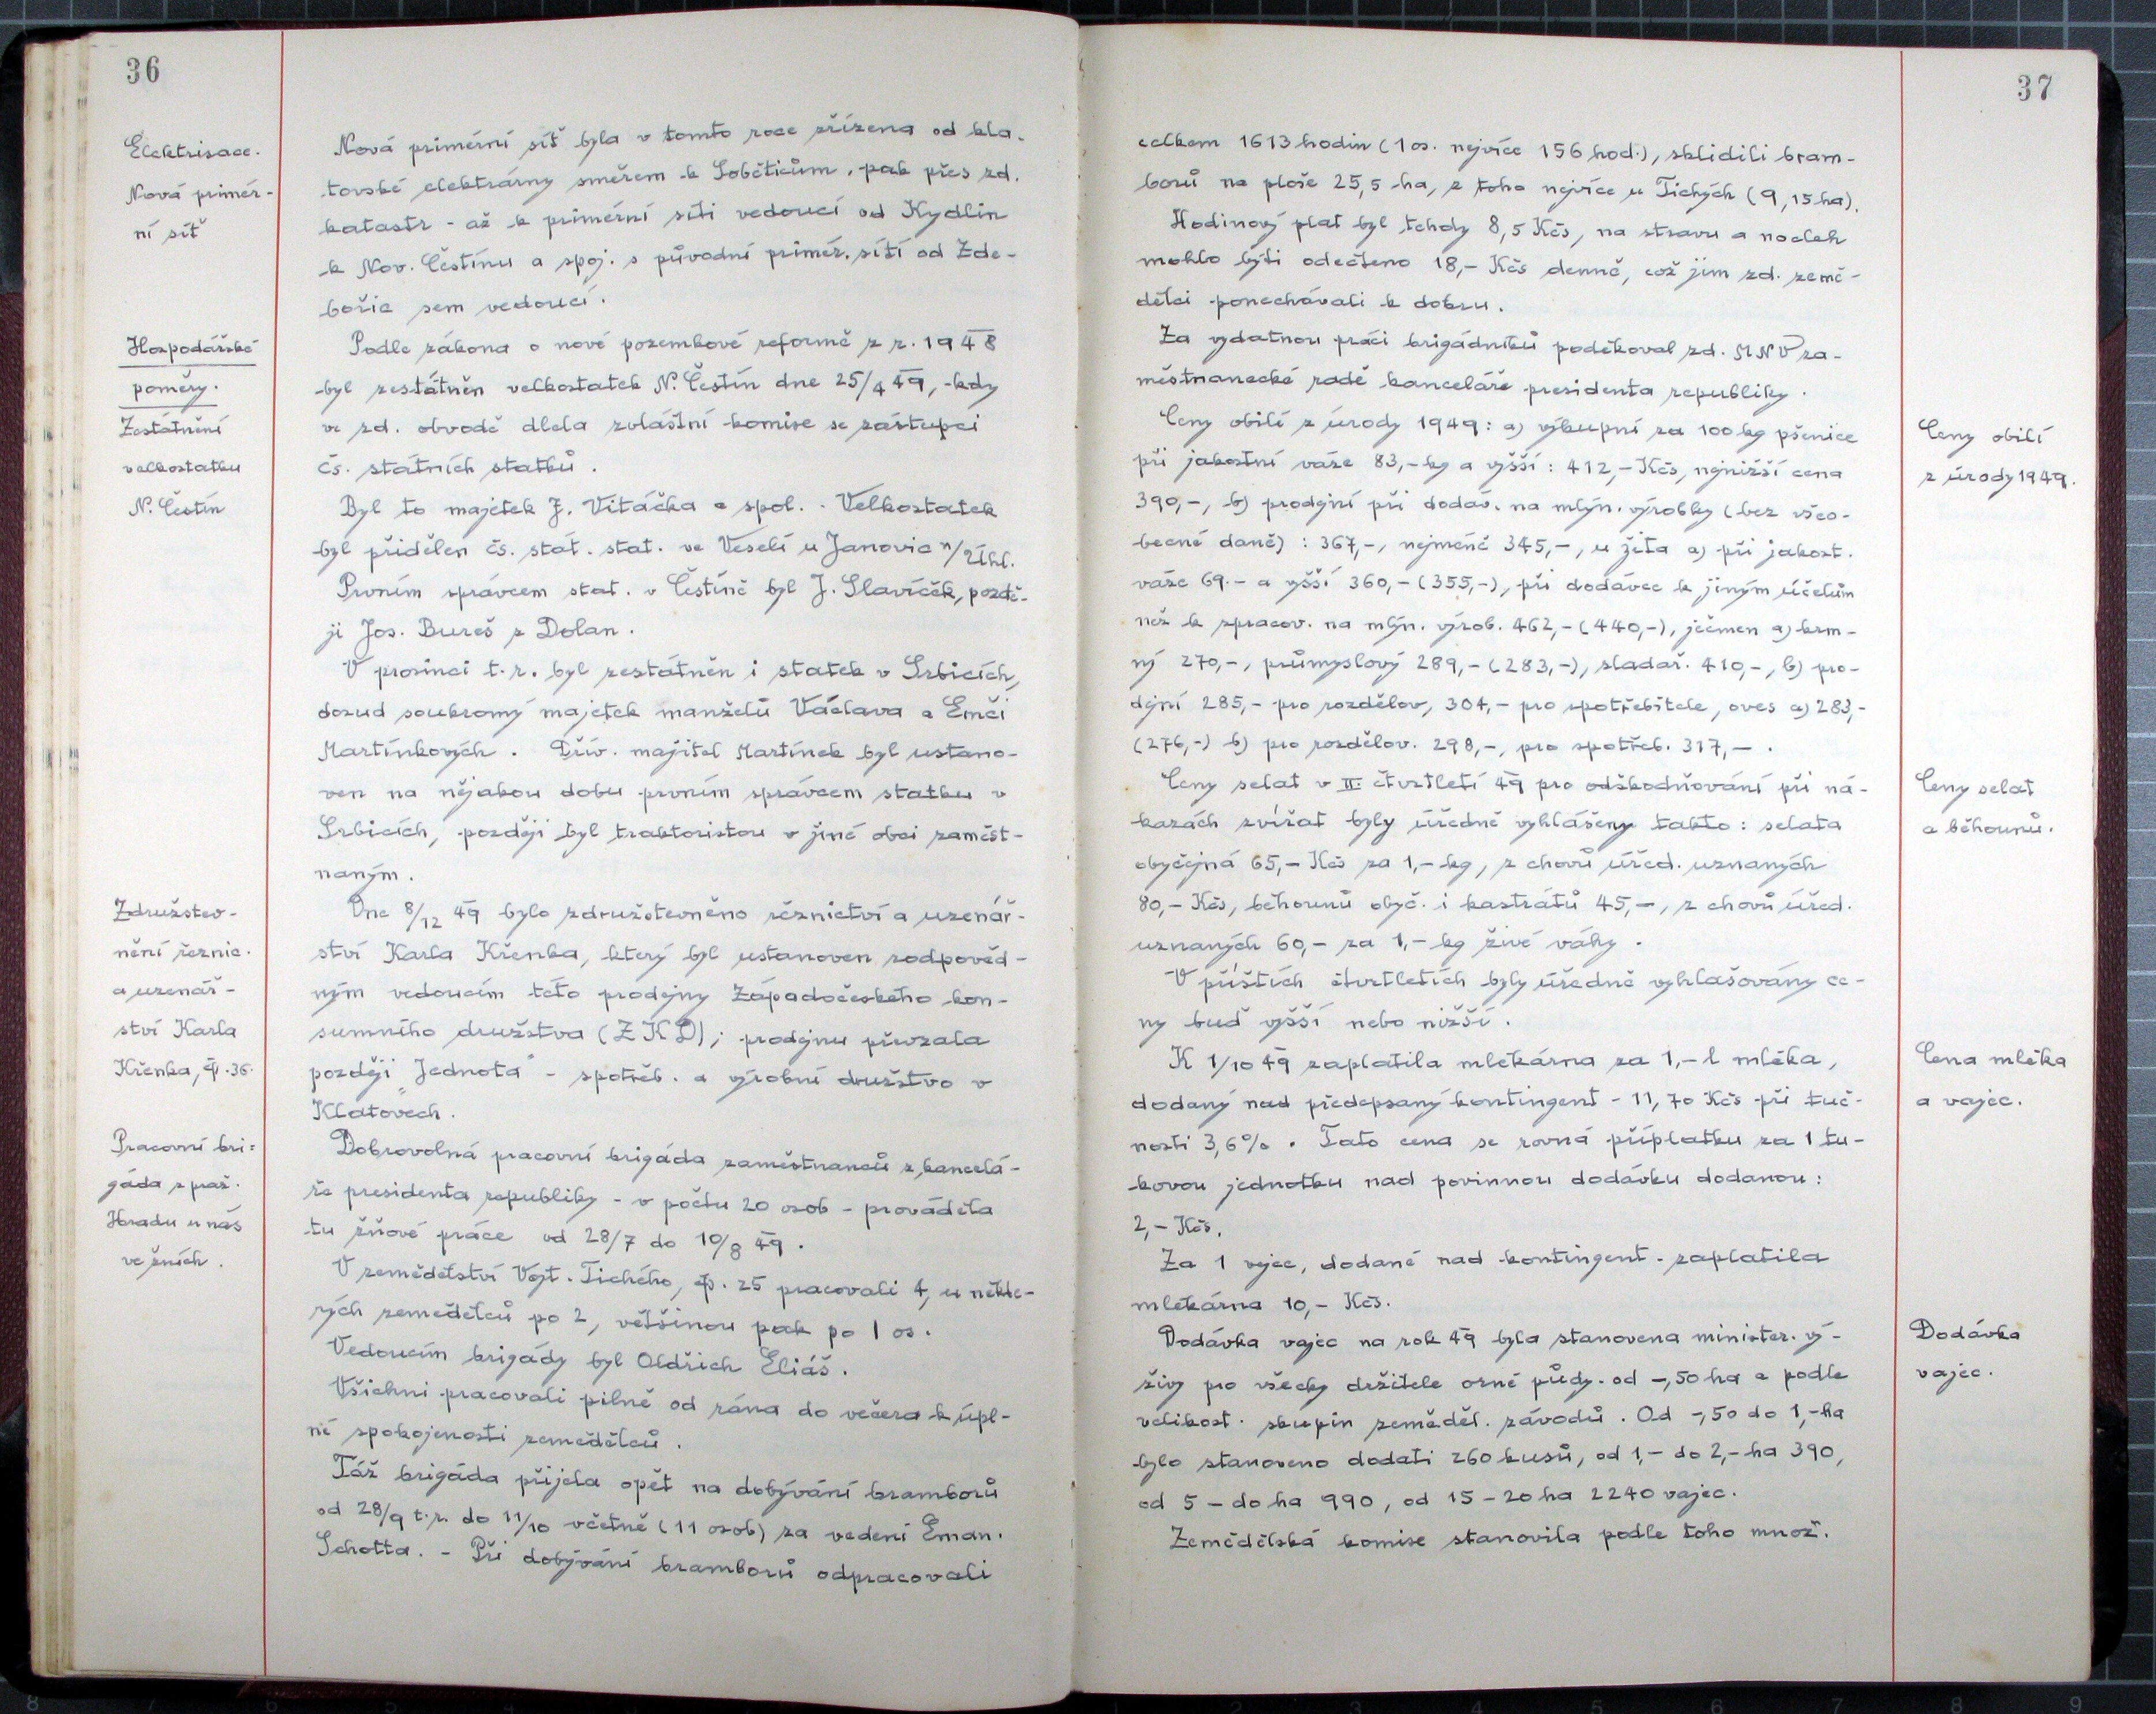 36
Elektrisace.
Nová primér-
ní síť
Nová primérní síť byla v tomto roce zřízena od kla-
tovské elektrárny směrem k Soběticům, pak přes zd.
katastr - až k primérní síti vedoucí od Kydlin
k Nov. Čestínu a spoj. s původní primér. sítí od Zde-
bořic sem vedoucí.
Hospodářské
poměry.
Zestátnění
velkostatku
N. Čestín
Podle zákona o nové pozemkové reformě z r. 1948
byl zestátněn velkostatek N. Čestín dne 25/4 49, kdy
ve zd. obvodě dlela zvláštní komise se zástupci
čs. státních statků.
Byl to majetek J. Vitáčka a spol. - Velkostatek
byl přidělen čs. stát. stat. ve Veselí u Janovic n/Úhl.
Prvním správcem stat. v Čestíně byl J. Slavíček, pozdě-
ji Jos. Bureš z Dolan.
V prosinci t.r. byl zestátněn i statek v Srbicích,
dosud soukromý majetek manželů Václava a Emči
Martínkových. Dřív. majitel Martínek byl ustano-
ven na nějakou dobu prvním správcem statku v
Srbicích, později byl traktoristou v jiné obci zaměst-
naným.
Združstev-
nění řeznic.
a uzenář-
ství Karla
Křenka, čp. 36.
Dne 8/12 49 bylo združstevněno řeznictví a uzenář-
ství Karla Křenka, který byl ustanoven zodpověd-
ným vedoucím této prodejny Západočeského kon-
sumního družstva (ZKD); prodejnu převzala
později "Jednota" - spotřeb. a výrobní družstvo v
Klatovech.
Pracovní bri-
gáda z praž.
Hradu u nás
ve žních.
Dobrovolná pracovní brigáda zaměstnanců z kancelá-
ře presidenta republiky - v počtu 20 osob - prováděla
tu žňové práce od 28/7 do 10/8 49.
V zemědělství Vojt. Tichého, čp. 25 pracovali 4, u někte-
rých zemědělců po 2, většinou pak po 1 os.
Vedoucím brigády byl Oldřich Eliáš.
Všichni pracovali pilně od rána do večera k úpl-
né spokojenosti zemědělců.
Táž brigáda přijela opět na dobývání bramborů
od 28/9 t.r. do 11/10 včetně (11 osob) za vedení Eman.
Schotta. - Při dobývání bramborů odpracovali
37
celkem 1613 hodin (1 os. nejvíce 156 hod.), sklidili bram-
borů na ploše 25,5 ha, z toho nejvíce u Tichých (9,15 ha).
Hodinový plat byl tehdy 8,5 Kčs, na stravu a nocleh
mohlo býti odečteno 18,- Kčs denně, což jim zd. země-
dělci ponechávali k dobru.
Za vydatnou práci brigádníků poděkoval zd. MNV za-
městnanecké radě kanceláře presidenta republiky.
Ceny obilí
z úrody 1949.
Ceny obilí z úrody 1949: a) výkupní za 100 kg pšenice
při jakostní váze 83,- kg a vyšší: 412,- Kčs, nejnižší cena
390,-, b) prodejní při dodáv. na mlýn. výrobky (bez všeo-
becné daně): 367,-, nejméně 345,-, u žita a) při jakost.
váze 69.- a vyšší 360,- (355,-), při dodávce k jiným účelům
než k zpracov. na mlýn. výrob. 462,- (440,-), ječmen a) krm-
ný 270,-, průmyslový 289,- (283,-), sladař. 410,-, b) pro-
dejní 285,- pro rozdělov, 304,- pro spotřebitele, oves a) 283,-
(276,-) b) pro rozdělov. 298,-, pro spotřeb. 317,-.
Ceny selat
a běhounů.
Ceny selat v III. čtvrtletí 49 pro odškodňování při ná-
kazách zvířat byly úředně vyhlášeny takto: selata
obyčejná 65,- Kčs za 1,- kg, z chovů úřed. uznaných
80,- Kčs, běhounů obyč. i kastrátů 45,-, z chovů úřed.
uznaných 60,- za 1,- kg živé váhy.
V příštích čtvrtletích byly úředně vyhlašovány ce-
ny buď vyšší nebo nižší.
Cena mléka
a vajec.
K 1/10 49 zaplatila mlékárna za 1,- l mléka,
dodaný nad předepsaný kontingent - 11,70 Kčs při tuč-
nosti 3,6%. Tato cena se rovná příplatku za 1 tu-
kovou jednotku nad povinnou dodávku dodanou:
2,- Kčs.
Za 1 vejce, dodané nad kontingent - zaplatila
mlékárna 10,- Kčs.
Dodávka
vajec.
Dodávka vajec na rok 49 byla stanovena minister. vý-
živy pro všecky držitele orné půdy - od -,50 ha a podle
velikost. skupin zeměděl. závodů. Od -,50 do 1,- ha
bylo stanoveno dodati 260 kusů, od 1,- do 2,- ha 390,
od 5 - do ha 990, od 15 - 20 ha 2240 vajec.
Zemědělská komise stanovila podle toho množ.